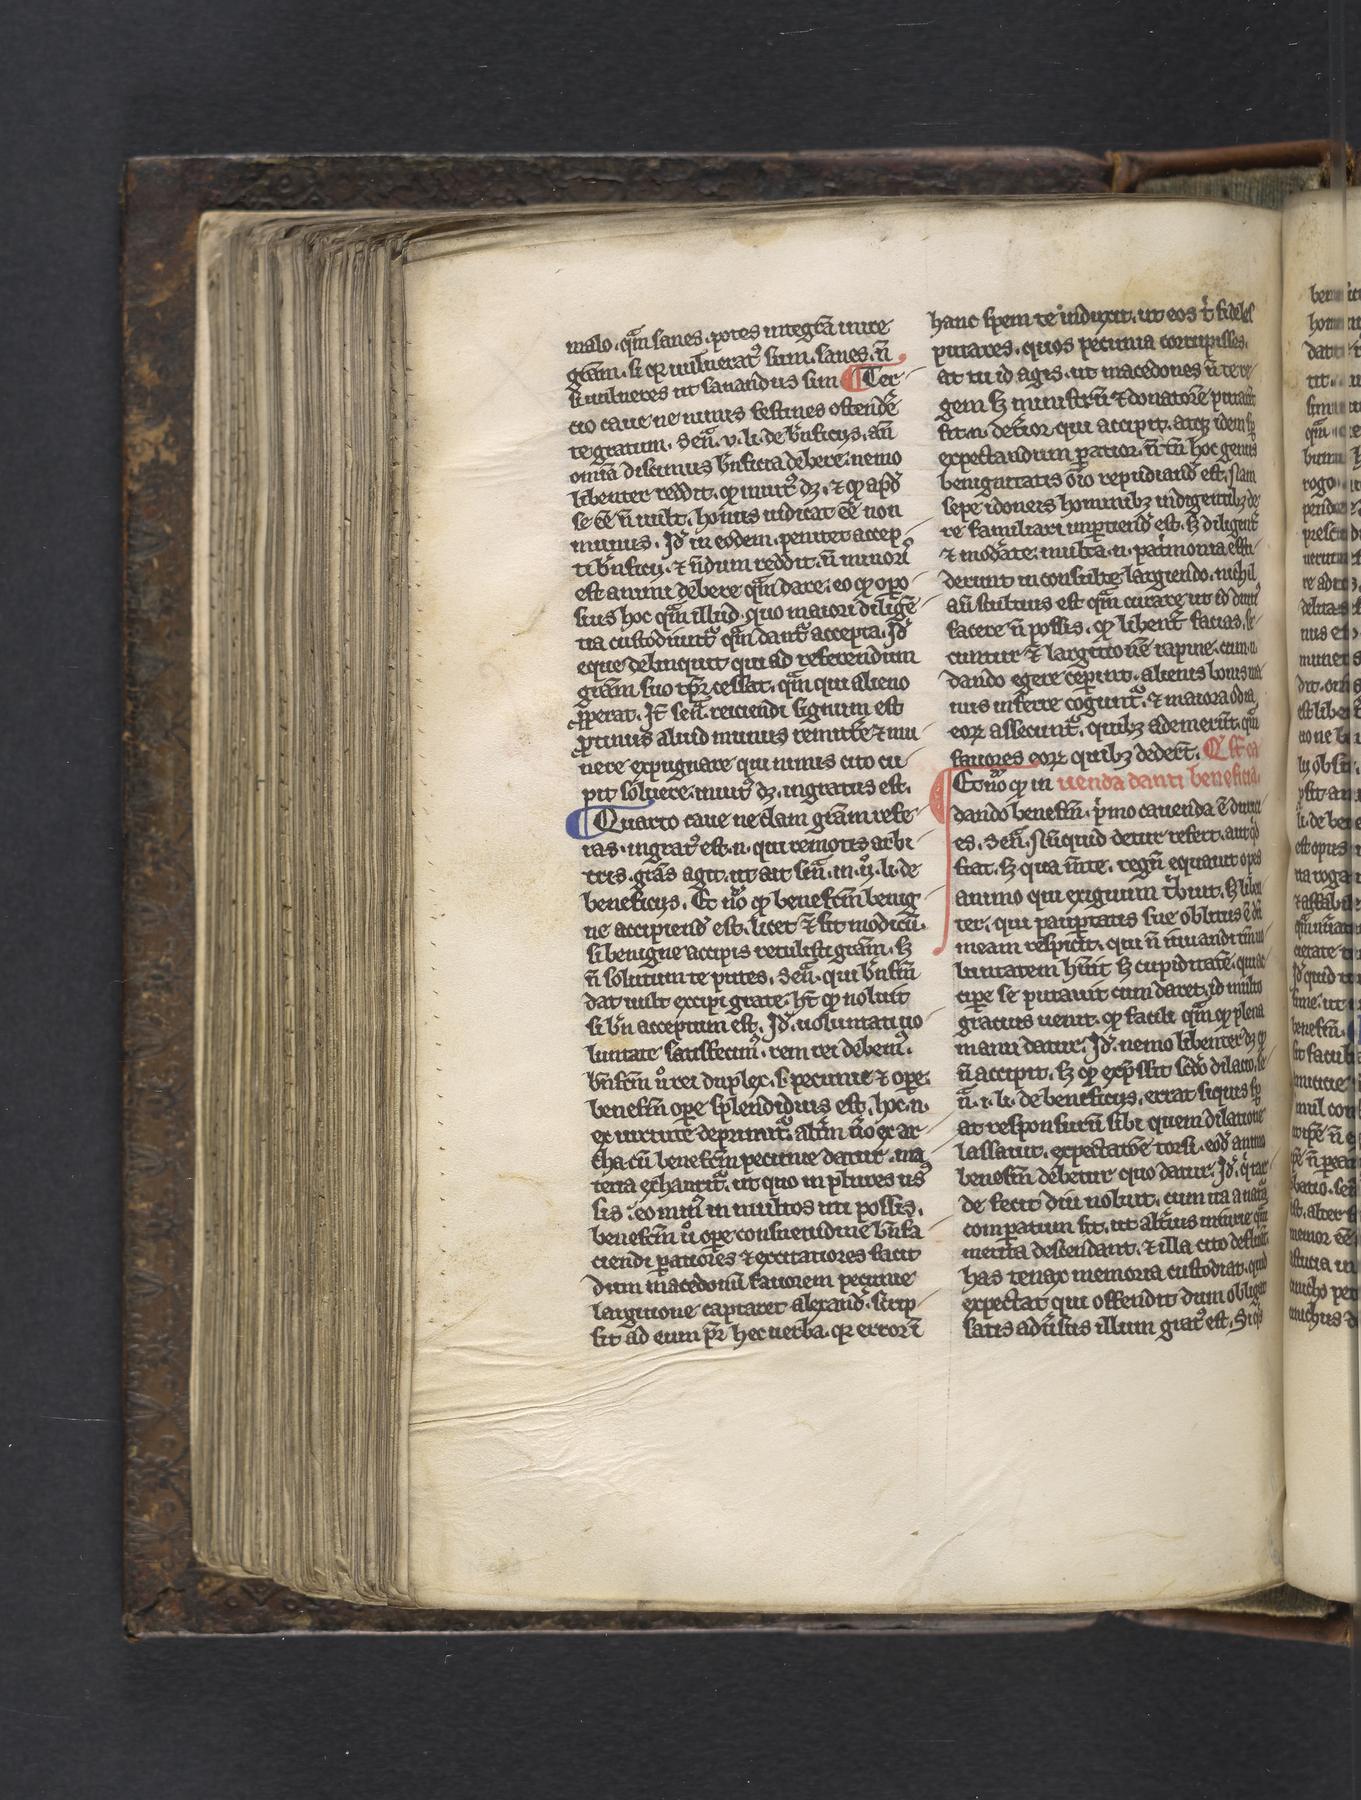 malo. qm̄ sanes. potes integrā inire
gr̄am. si qr uulnerat᷒ sum. sanes. n̄
si uulneres ut sanandus sim ¶ Ter
cio caue ne nimis festines ostende͂
te gratum. Sen̄. v. li. de bn̄ficijs. an̄
omīa discimus bn̄ficia debere. nemo
libenter reddit. qd inuit᷒ dꝫ. ⁊ qd apd̄
se eē n̄ uult. honus iudicat eē non
munus. Id̄ in eodem. penitet accep
ti bn̄ficij. ⁊ n̄dum reddit. n̄ minoris
est animi debere qm̄ dare. eo qd opo
sius hoc qm̄ illud. quo maiori diligē
tia custodiunt᷒ qm̄ dant᷒ accepta. Id̄
eque delinquit qui ad referendum
gr̄am suo tp̄r cessat. qm̄ qui alieno
ꝓperat. It̄ sen̄. reiciendi signum est
ꝓtinus aliud munus remitte͂ ⁊ mu
nere expugnare qui nimis cito cu
pit soluere. inuit᷒ dꝫ. ingratus est.
Quarto caue ne clam gr̄am refe
ras. ingrat᷒ est. n. qui remotis arbi
tris. gr̄as agit. ut ait sen̄. in. ij. li. de
beneficijs. Et no͂ qd benefcm̄ benig
ne accipiend᷒ est. licet ⁊ sit modicū.
si benigne accipis retulisti gr̄am. sꝫ
n̄ solutum te putes. Sen̄. qui bn̄fcm̄
dat uult excipi grate. ht̄ qd uoluit
si bn̄ acceptum est. Id̄. uoluntati uo
luntate satisfecim᷒. rem rei debem᷒.
bn̄fcm̄ u͂ rei duplex. s. pecunie ⁊ ope.
benefcm̄ ope splendidius est. hoc. n.
ex uirtute depromit᷒. altm̄ u͂o ex ar
cha. cū benefcm̄ pecunie datur. ma
teria exhaurit᷒. ut quo in plures us᷒
sis. eo min᷒ in multos uti possis.
benefcm̄ u͂ ope consuetudine bn̄fa
ciendi paratiores ⁊ excitatiores facit
Dum macedonū fauorem pecunie
largitione captaret alexand᷒. scrip
sit ad eum pr̄ hec uerba. qr error te
hanc spem te induxit. ut eos t͂ fideles
putares. quos pecunia corrupisses.
at tu id agis. ut macedones n̄ te re
gem sꝫ ministrū ⁊ donatorē putent
fit. n. deterior qui accipit. atqꝫ idem sp̄
expectandum paratior. n̄ tn̄ hoc genus
benignitatis oīo repudiand᷒ est. Nam
sepe idoneis hominibꝫ indigentibꝫ de
re familiari impertiend᷒ est. sꝫ diligent͂
⁊ moderate. multi. n. patimonia effu
derunt inconsulte largiendo. nichil
au͂ stultius est qm̄ curare ut id diuti᷒
facere n̄ possis. qd libent͂ facias. se
cuntur ⁊ largitionē rapine. cum. n.
dando egere ceperint. alienis bonis ma
nus inferre cogunt᷒. ⁊ maiora odia
eoꝝ assecunt᷒. quibꝫ ademerūt. qm̄
fauores eoꝝ quibꝫ dedert̄. Qd̄ sit ca
uenda danti beneficia.
Et no͂ qd in
dando benefcm̄. pimo cauenda ē duri
es. Sen̄. Nūquid detur refert. aut qd̄
fiat. sꝫ qua mn̄te. regū equauit opes
animo qui exiguum t͂buit. sꝫ liben
ter. qui paupertatis sue oblitus ē dū
meam respicit. qui n̄ iuuandi tm̄ uo
luntatem hūit sꝫ cupiditatē. qui ac
cipe se putauit cum daret. id multo
gratius uenit. qd facili qm̄ qd plena
manu datur. Id̄. nemo libenter dꝫ qd
n̄ accipit. sꝫ qd exp̄ssit. scd͂o dilacio. se
n̄. i. li. de beneficijs. errat siquis sp̄
at responsurū sibi quem dilatione
lassauit. expectatōe torsit. eod̄ animo
benefcm̄ debetur quo datur. Id̄. q͂ tar
de fecit diu uoluit. cum ita a natā
comparatum sit. ut altius iniurie qm̄
merita descendant. ⁊ illa cito defluāt
has tenax memoria custodiat. quid
expectat qui offendit dum obligat
satis aduersus illum grat᷒ est. Siqͥs